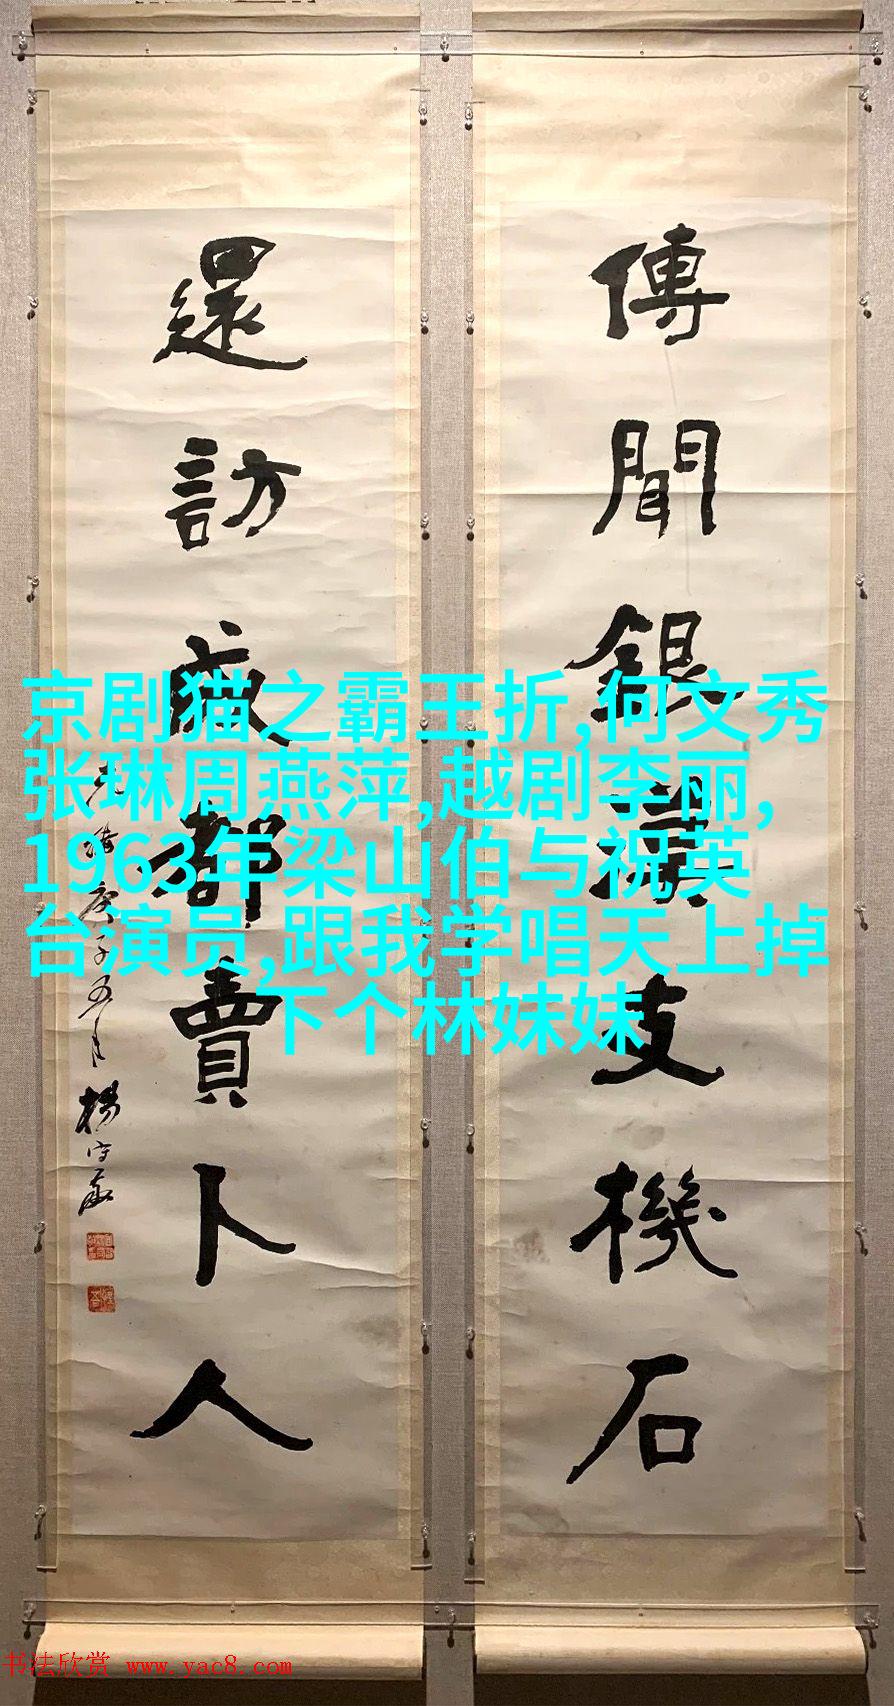 傳聞銀漢支機石
還訪成都賣卜人
光緒庚子五月楊守敬
京剧猫之霸王折,何文秀
张琳周燕萍,越剧李丽,
1963年梁山伯与祝英
台演员,跟我学唱天上掉
下个林妹妹
书法欣赏 www.yac8.com